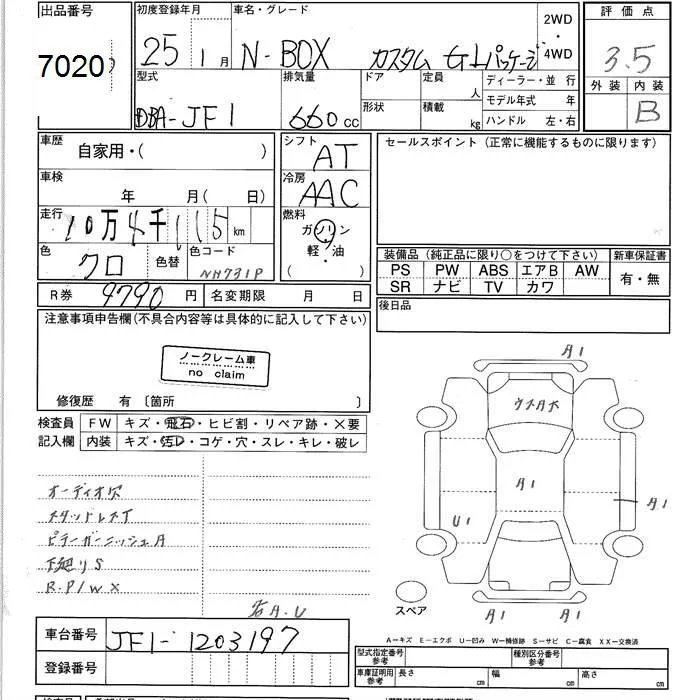 出品番号 初度登録年月 車名・グレード 2WD・4WD 評価点
7020 25年1月 N-BOX カスタム G Lパッケージ 3.5
型式 排気量 ドア 定員 人 ディーラー・並行
DBA-JF1 660cc 形状 積載 kg モデル年式 年
ハンドル 左・右
外装 内装
B
車歴 自家用・( ) シフト AT
セールスポイント(正常に機能するものに限ります)
車検 年 月( 日) 冷房 AAC
走行 10万4千115km 燃料 ガソリン
軽・油
( )
色 クロ 色替 色コード NH731P
装備品(純正品に限り○をつけて下さい) 新車保証書
PS PW ABS エアB AW 有・無
SR ナビ TV カワ
R券 9790円 名変期限 月 日
後日品
注意事項申告欄(不具合内容等は具体的に記入して下さい)
ノークレーム車
no claim
修復歴 有〔箇所 〕
検査員 FW キズ・飛石・ヒビ割・リペア跡・×要
記入欄 内装 キズ・汚レ・コゲ・穴・スレ・キレ・破レ
オーディオ欠
スタッドレスT
ピラーガーニッシュA
下廻りS
R.P/W X
右A.U
A1
A1
A1
U1
A1 A1
スペア
A-キズ E-エクボ U-凹み W-補修跡 S-サビ C-腐食 XX-交換済
車台番号 JF1-1203197
登録番号
型式指定番号 参考 種別区分番号 参考
車庫証明用 参考 長さ cm 幅 cm 高さ cm